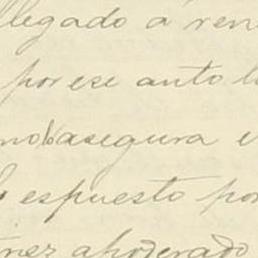 llegado a ren
por ese auto l
no asegura e
espuesto por
apoderado